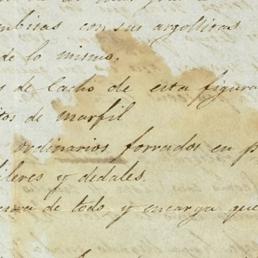 con sus argollitas
de lo mismo.
de cacho de esta figura
de marfil
ordinarios forrados en p
y dedales.
de todo, y encarga que